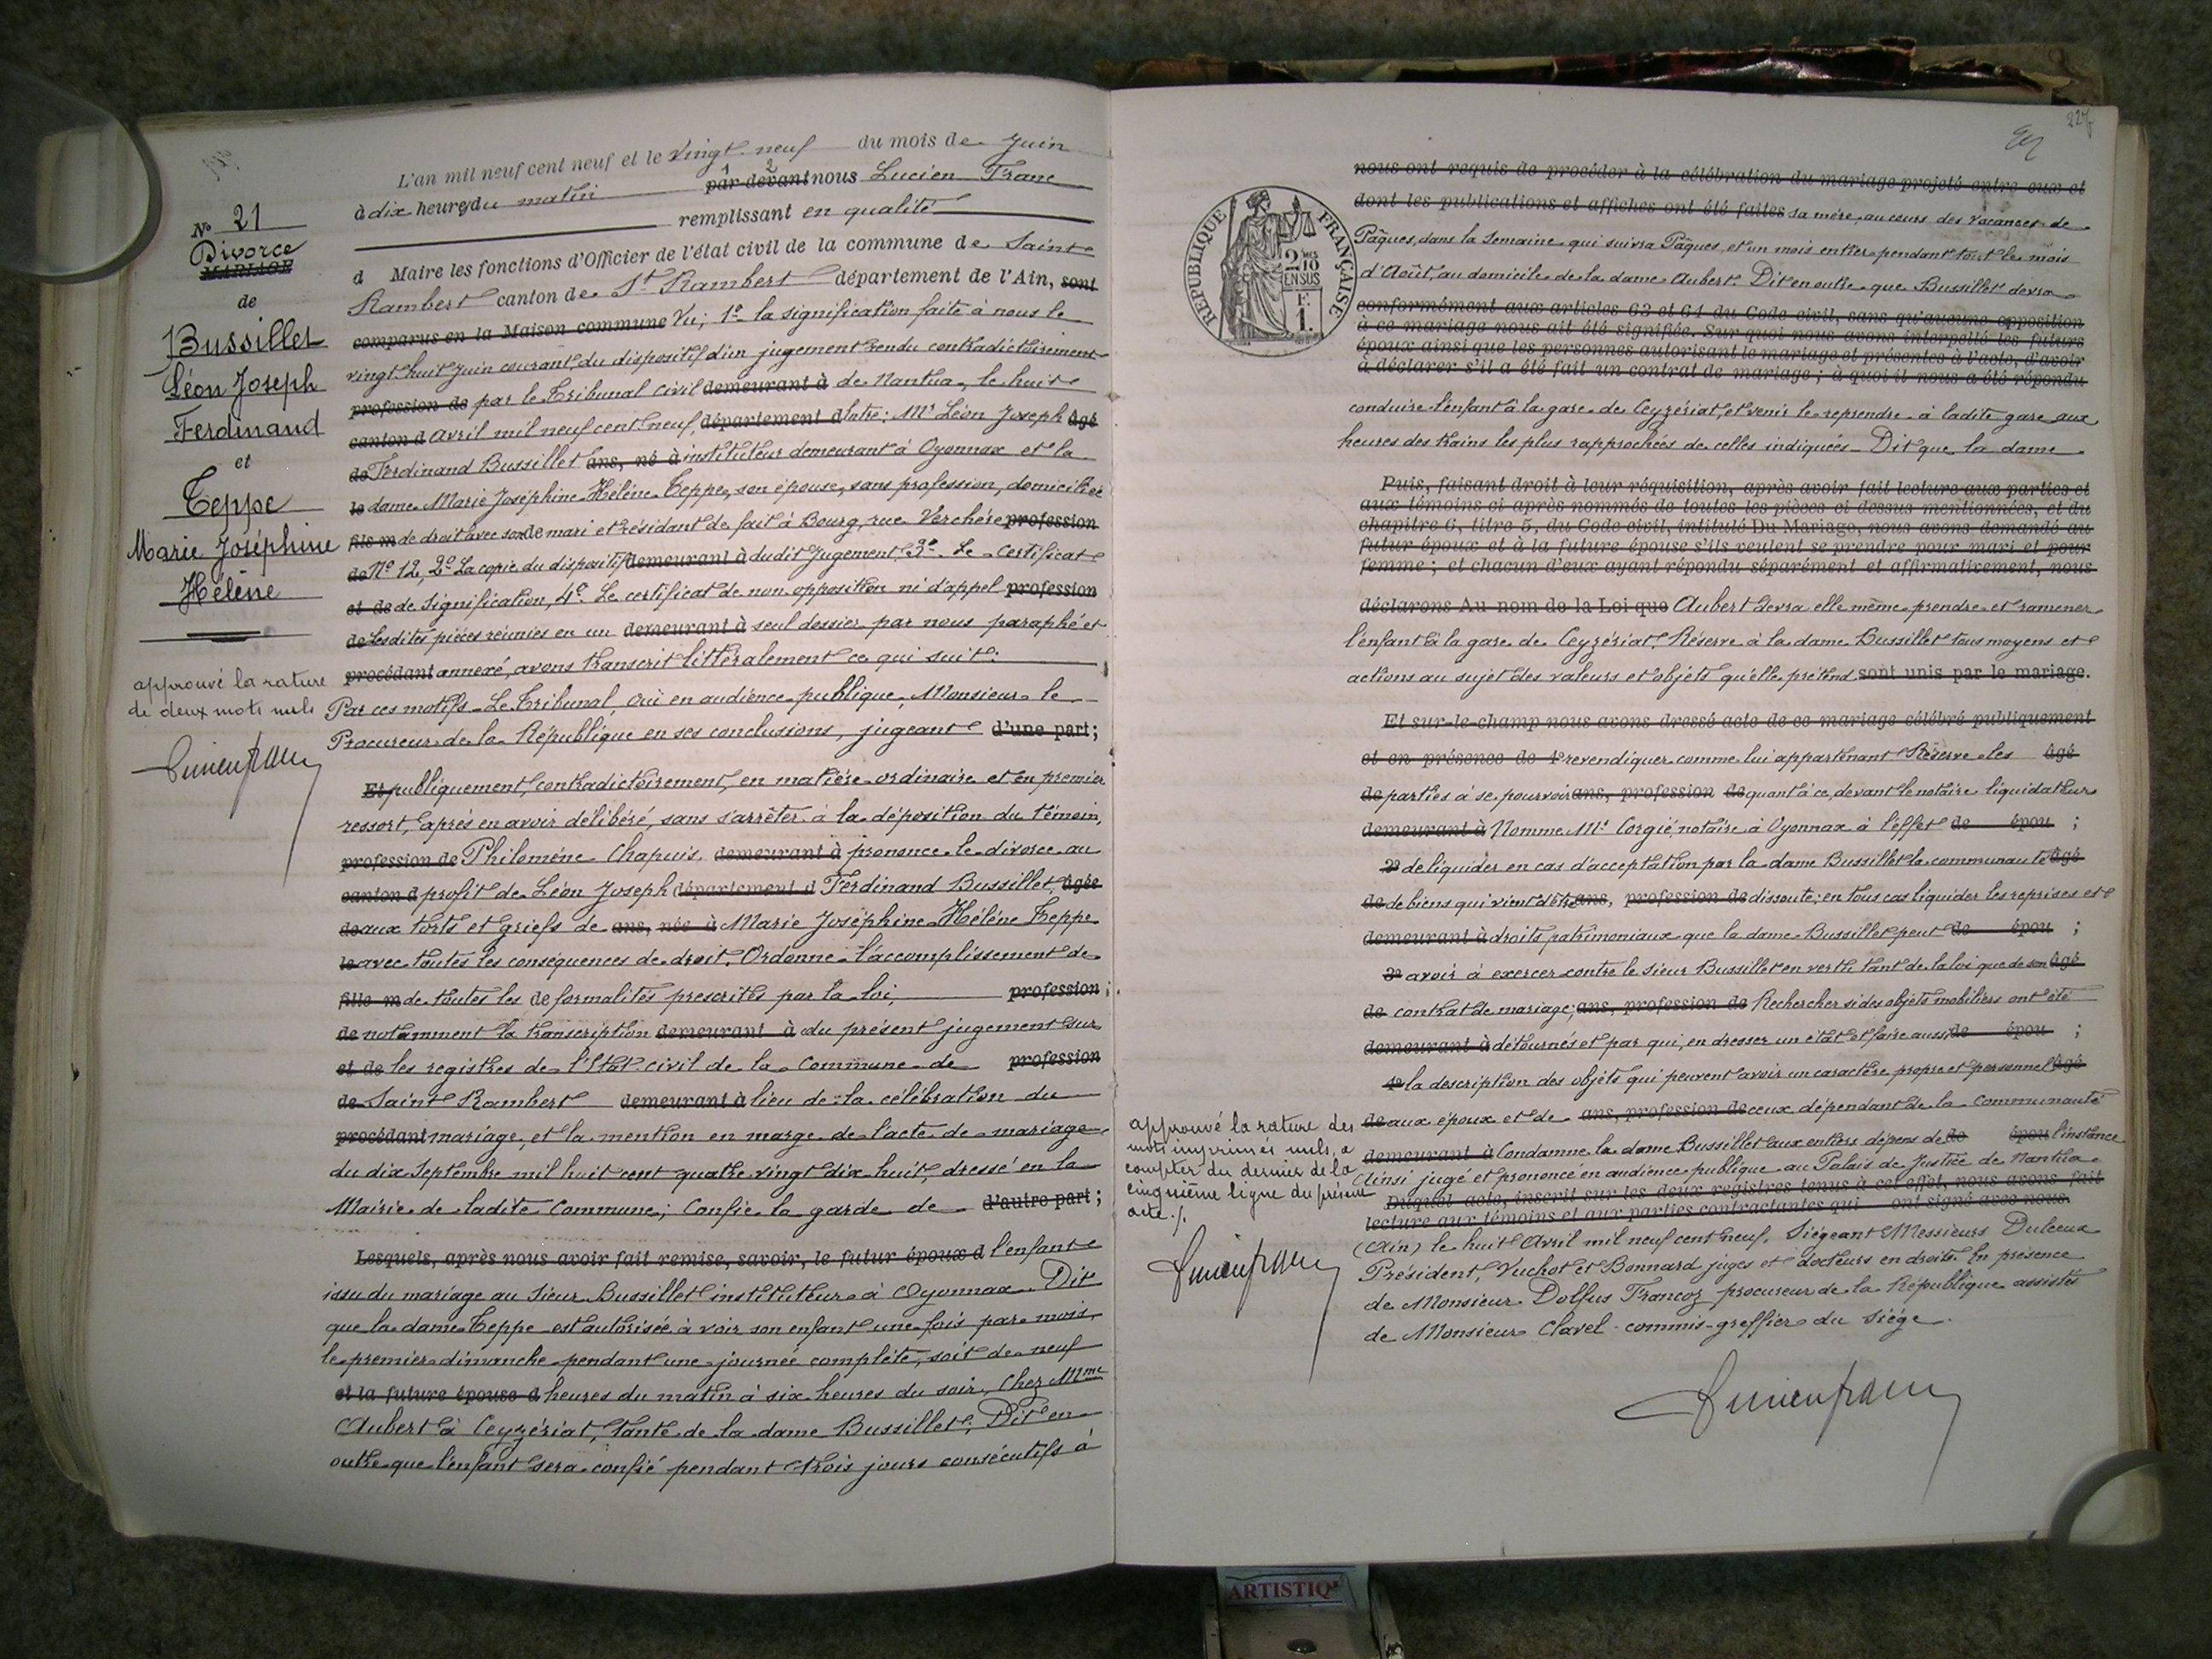 N° 21
Divorce
MARIAGE
de
Bussillet
Léon Joseph
Ferdinand
et
Teppe
Marie Joséphine
Hélène
approuvé la rature
de deux mots nuls
L'an mil neuf cent neuf et le vingt-neuf du mois de Juin
à dix heures du matin par-devant nous Lucien Franc
remplissant en qualité
d Maire les fonctions d'Officier de l'état civil de la commune de Saint
Rambert canton de St Rambert département de l'Ain, sont
comparus en la Maison commune Vu; 1° la signification faite à nous le
vingt-huit Juin courant, du dispositif d'un jugement rendu contradictoirement
profession de par le Tribunal civil demeurant à de Nantua, le huit
canton d Avril mil neuf cent neuf, département d Entre: Mr Léon Joseph âgé
de Ferdinand Bussillet ans, né à instituteur demeurant à Oyonnax et la
le dame Marie Joséphine Hélène Teppe, son épouse, sans profession, domiciliée
fils m de droit avec son de mari et résidant de fait à Bourg, rue Verchère profession
de N° 12, 2° La copie du dispositif demeurant à dudit Jugement, 3° Le certificat
et de de signification, 4° Le certificat de non opposition ni d'appel profession
de Lesdites pièces réunies en un demeurant à seul dossier par nous paraphé et
procédant annexé, avons transcrit littéralement ce qui suit:
Par ces motifs - Le Tribunal, ouï en audience publique, Monsieur le
Procureur de la République en ses conclusions, jugeant d'une part;
Et publiquement, contradictoirement, en matière ordinaire et en premier
ressort, après en avoir délibéré, sans s'arrêter à la déposition du témoin,
profession de Philomène Chapuis, demeurant à prononce le divorce au
canton d profit de Léon Joseph département d Ferdinand Bussillet, âgée
de aux torts et griefs de ans, née à Marie Joséphine Hélène Teppe
le avec toutes les conséquences de droit. Ordonne l'accomplissement de
fille m de toutes les de formalités prescrites par la loi, profession;
de notamment la transcription demeurant à du présent jugement sur
et de les registres de l'Etat civil de la Commune de profession
de Saint Rambert demeurant à lieu de la célébration du
procédant mariage, et la mention en marge de l'acte de mariage
du dix Septembre mil huit cent quatre vingt dix huit, dressé en la
Mairie de ladite Commune; Confie la garde de d'autre part;
Lesquels, après nous avoir fait remise, savoir, le futur époux d l'enfant
issu du mariage au Sieur Bussillet instituteur à Oyonnax. Dit
que la dame Teppe est autorisée à voir son enfant une fois par mois,
le premier dimanche pendant une journée complète, soit de neuf
et la future épouse d heures du matin à six heures du soir, Chez Mme
Aubert à Ceyzériat, tante de la dame Bussillet; Dit en
outre que l'enfant sera confié pendant trois jours consécutifs à
227
RÉPUBLIQUE FRANÇAISE
2/10 EN SUS
F.
1.
nous ont requis de procéder à la célébration du mariage projeté entre eux et
dont les publications et affiches ont été faites sa mère, au cours des vacances de
Pâques, dans la semaine qui suivra Pâques, et un mois entier pendant tout le mois
d'Août, au domicile de la dame Aubert. Dit en outre que Bussillet devra
conformément aux articles 63 et 64 du Code civil, sans qu'aucune opposition
à ce mariage nous ait été signifiée. Sur quoi nous avons interpellé les futurs
époux ainsi que les personnes autorisant le mariage et présentes à l'acte, d'avoir
à déclarer s'il a été fait un contrat de mariage; à quoi il nous a été répondu
conduire l'enfant à la gare de Ceyzériat, et venir le reprendre à ladite gare aux
heures des trains les plus rapprochées de celles indiquées - Dit que la dame
Puis, faisant droit à leur réquisition, après avoir fait lecture aux parties et
aux témoins ci après nommés de toutes les pièces ci dessus mentionnées, et du
chapitre 6, titre 5, du Code civil, intitulé Du Mariage, nous avons demandé au
futur époux et à la future épouse s'ils veulent se prendre pour mari et pour
femme; et chacun d'eux ayant répondu séparément et affirmativement, nous
déclarons Au nom de la Loi que Aubert devra elle même prendre et ramener
l'enfant à la gare de Ceyzériat. Réserve à la dame Bussillet tous moyens et
actions au sujet des valeurs et objets qu'elle prétend sont unis par le mariage.
Et sur-le-champ nous avons dressé acte de ce mariage célébré publiquement
et en présence de 1° revendiquer comme lui appartenant Réserve les âgé
de parties à se pourvoir ans, profession de quant à ce, devant le notaire liquidateur
demeurant à Nomme Me Corgié notaire à Oyonnax à l'effet de épou ;
2° de liquider en cas d'acceptation par la dame Bussillet la communauté âgé
de de biens qui vient d'être ans, profession de dissoute; en tous cas liquider les reprises et
demeurant à droits patrimoniaux que la dame Bussillet peut de épou ;
3° avoir à exercer contre le sieur Bussillet en vertu tant de la loi que de son âgé
de contrat de mariage; ans, profession de Rechercher si des objets mobiliers ont été
demeurant à détournés et par qui, en dresser un état et faire aussi de épou ;
4° la description des objets qui peuvent avoir un caractère propre et personnel âgé
de aux époux et de ans, profession de ceux dépendant de la Communauté
demeurant à Condamne la dame Bussillet aux entiers dépens de de épou l'instance
Ainsi jugé et prononcé en audience publique au Palais de Justice de Nantua
Duquel acte, inscrit sur les deux registres tenus à cet effet, nous avons fait
lecture aux témoins et aux parties contractantes qui ont signé avec nous.
(Ain) le huit Avril mil neuf cent neuf. Siégeant Messieurs Dulceux
Président, Vuchot et Bonnard juges et docteurs en droit. En présence
de Monsieur Dolfus Francoz procureur de la République assistés
de Monsieur Clavel commis-greffier du siége.
approuvé la rature des
mots imprimés nuls, à
compter du dernier de la
cinquième ligne du présent
acte ./.
ARTISTIQ